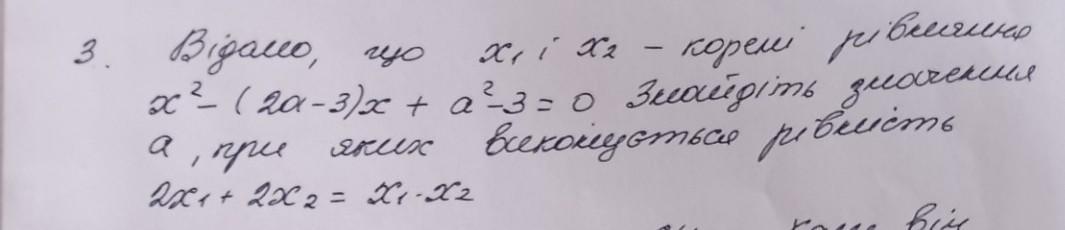 3. Відомо, що x₁ і x₂ – корені рівняння
x² – (2a – 3)x + a² – 3 = 0 Знайдіть значення
a, при яких виконується рівність
2x₁ + 2x₂ = x₁ · x₂
він